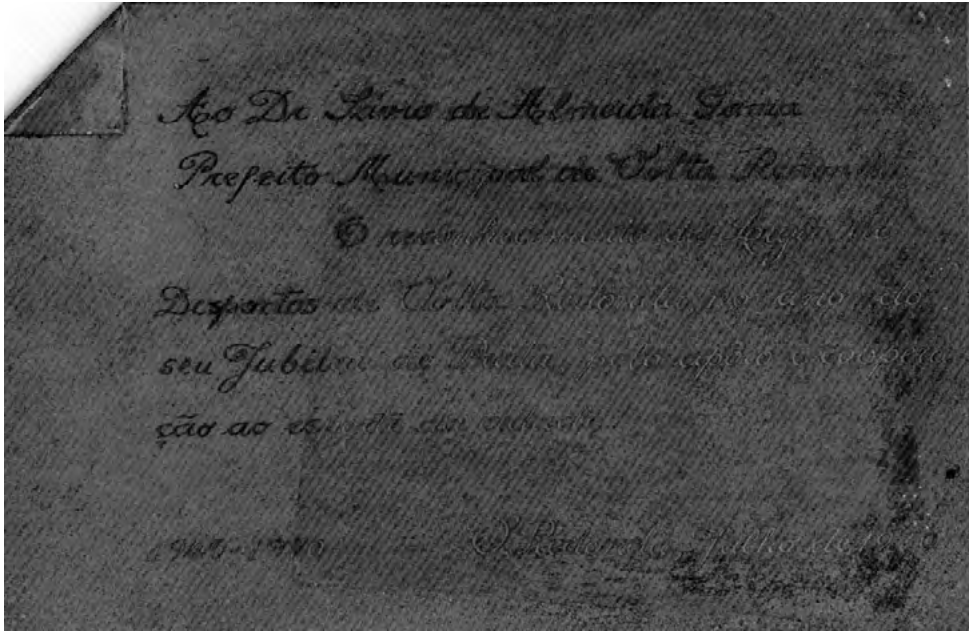 Ao Dr Sávio de Almeida Gama
Prefeito Municipal de Volta Redonda
O reconhecimento da Liga de
Desportos de Volta Redonda, no ano do
seu Jubileu de Prata, pelo apoio e coopera
ção ao esporte da cidade.
V. Redonda, Julho de